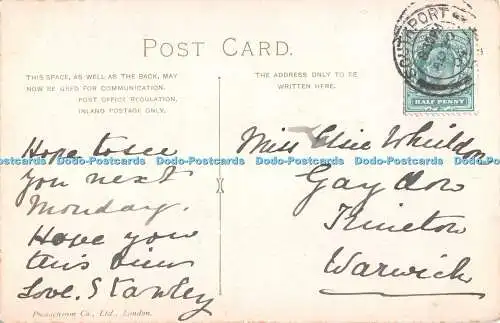 POST CARD.
THIS SPACE, AS WELL AS THE BACK, MAY
NOW BE USED FOR COMMUNICATION.
POST OFFICE REGULATION.
INLAND POSTAGE ONLY.
THE ADDRESS ONLY TO BE
WRITTEN HERE.
SOUTHPORT
HALF PENNY
Hope to see
you next
Monday.
Hope you
this
Love. Stanley
Miss Elsie Wheildon
Gaydon
Kineton
Warwick
Dodo-Postcards Dodo-Postcards Dodo-Postcards Dodo-Postcards Dodo-Postcards Dodo-Postcards
Photochrom Co., Ltd., London.